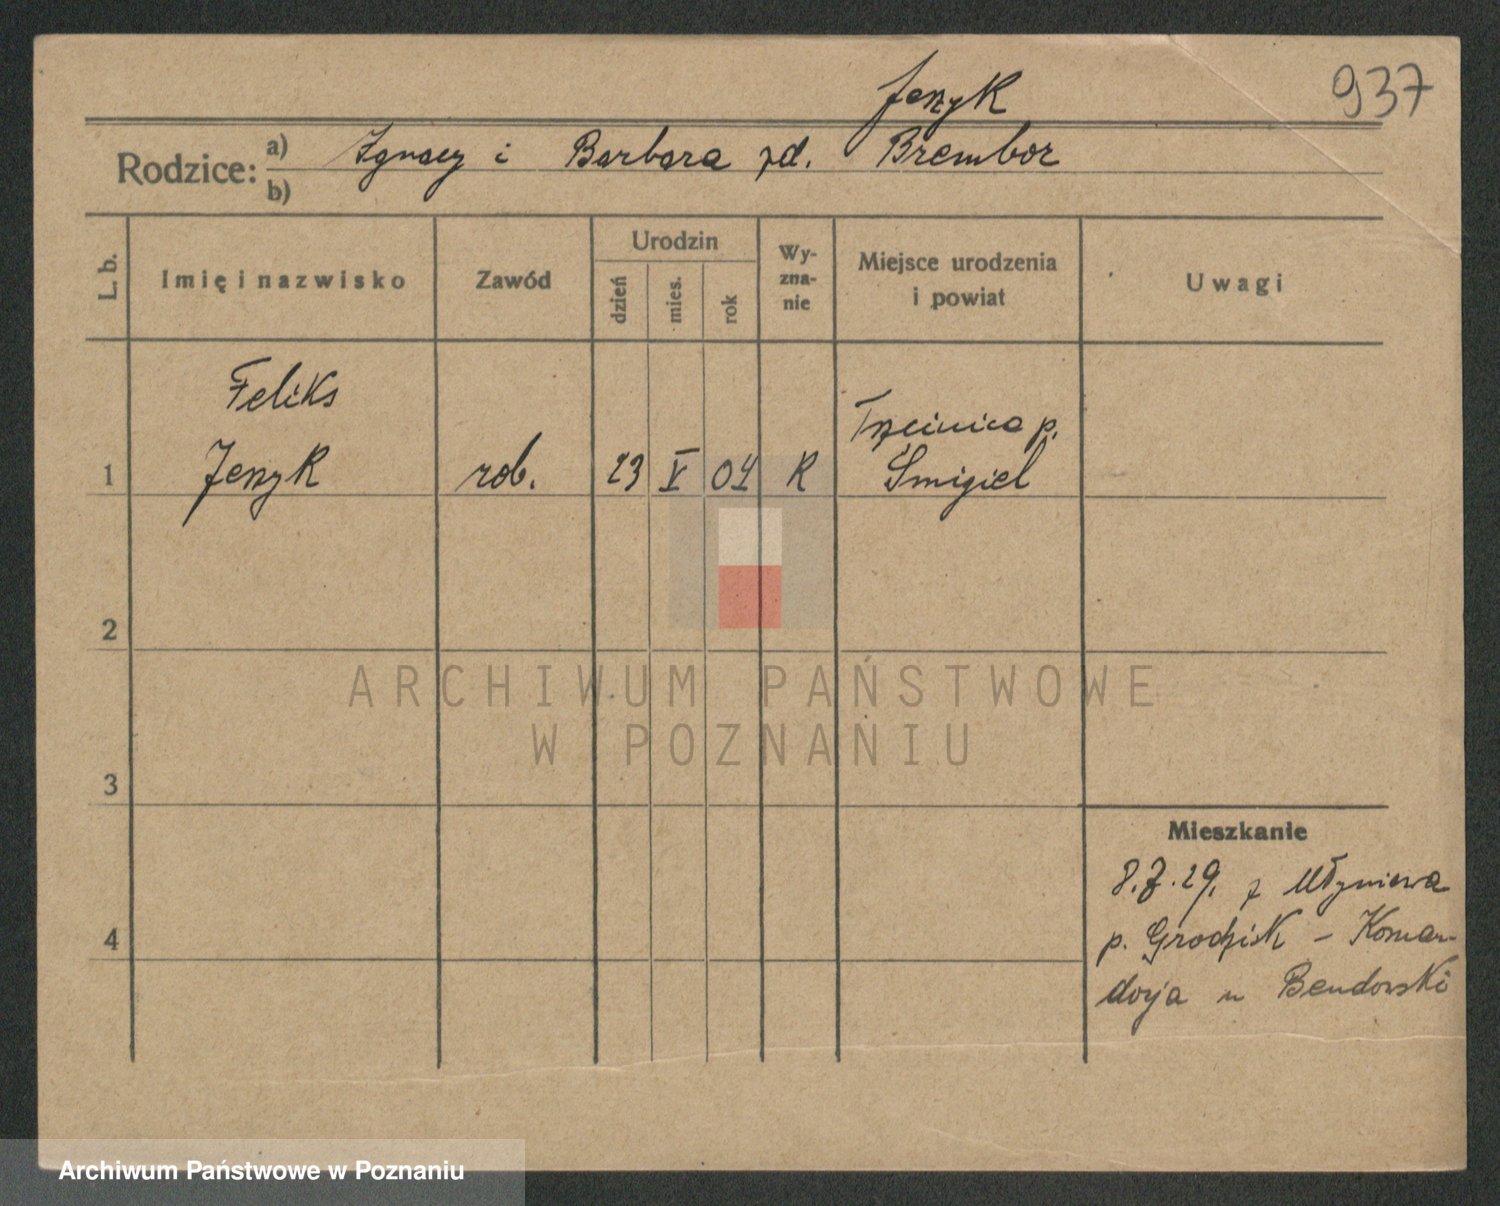 937
Jenyk
Rodzice: a) Ignacy i Barbara zd. Brembor
b)
L. b.
Imię i nazwisko
Zawód
Urodzin
dzień
mies.
rok
Wy-
zna-
nie
Miejsce urodzenia
i powiat
Uwagi
Feliks
Trzcinica p.
1 Jenyk rob. 23 V 04 R Śmigiel
2
3
4
Mieszkanie
8.7.29. z Młyniewa
p. Grodzisk – Koman-
dorja u Bendorski
ARCHIWUM PAŃSTWOWE
W POZNANIU
Archiwum Państwowe w Poznaniu